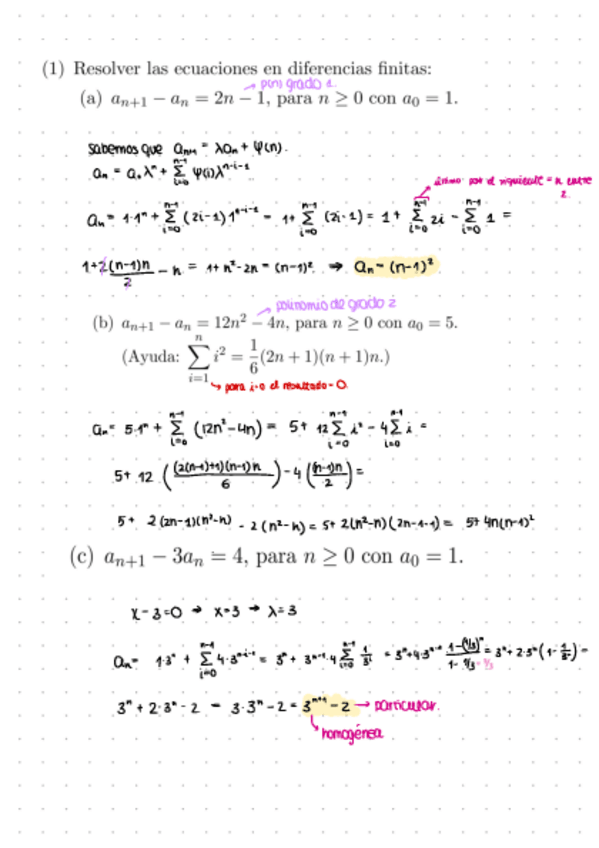 (1) Resolver las ecuaciones en diferencias finitas:
→ poni grado 1.
(a) aₙ₊₁ − aₙ = 2n − 1, para n ≥ 0 con a₀ = 1.
Sabemos que aₙ₊₁ = λaₙ + φ(n).
aₙ = a₀λⁿ + Σ_{i=0}^{n-1} φ(i)λ^{n-i-1}
último por el siguiente = n entre 2.
aₙ = 1·1ⁿ + Σ_{i=0}^{n-1} (2i-1)1^{n-i-1} = 1+ Σ_{i=0}^{n-1} (2i-1) = 1 + Σ_{i=0}^{n-1} 2i - Σ_{i=0}^{n-1} 1 =
1+2(n-1)n/2 - n = 1+ n²-2n = (n-1)² ⇒ aₙ = (n-1)²
→ polinomio de grado 2
(b) aₙ₊₁ − aₙ = 12n² − 4n, para n ≥ 0 con a₀ = 5.
(Ayuda: Σ_{i=1}^{n} i² = 1/6(2n + 1)(n + 1)n.)
↳ para i=0 el resultado = 0.
aₙ = 5·1ⁿ + Σ_{i=0}^{n-1} (12n²-4n) = 5+ 12 Σ_{i=0}^{n-1} i² - 4 Σ_{i=0}^{n-1} i =
5+ 12 ((2(n-1)+1)(n-1)n/6) - 4 ((n-1)n/2) =
5+ 2(2n-1)(n²-n) - 2(n²-n) = 5+ 2(n²-n)(2n-1-1) = 5+ 4n(n-1)²
(c) aₙ₊₁ − 3aₙ = 4, para n ≥ 0 con a₀ = 1.
x-3=0 → x=3 → λ=3
aₙ = 1·3ⁿ + Σ_{i=0}^{n-1} 4·3^{n-i-1} = 3ⁿ + 3^{n-1}·4 Σ_{i=0}^{n-1} 1/3^i = 3ⁿ+4·3^{n-1} (1-(1/3)ⁿ)/(1-1/3) = 3ⁿ+2·3ⁿ(1-1/3ⁿ) =
3ⁿ + 2·3ⁿ - 2 = 3·3ⁿ - 2 = 3^{n+1} - 2 → particular.
↳ homogénea